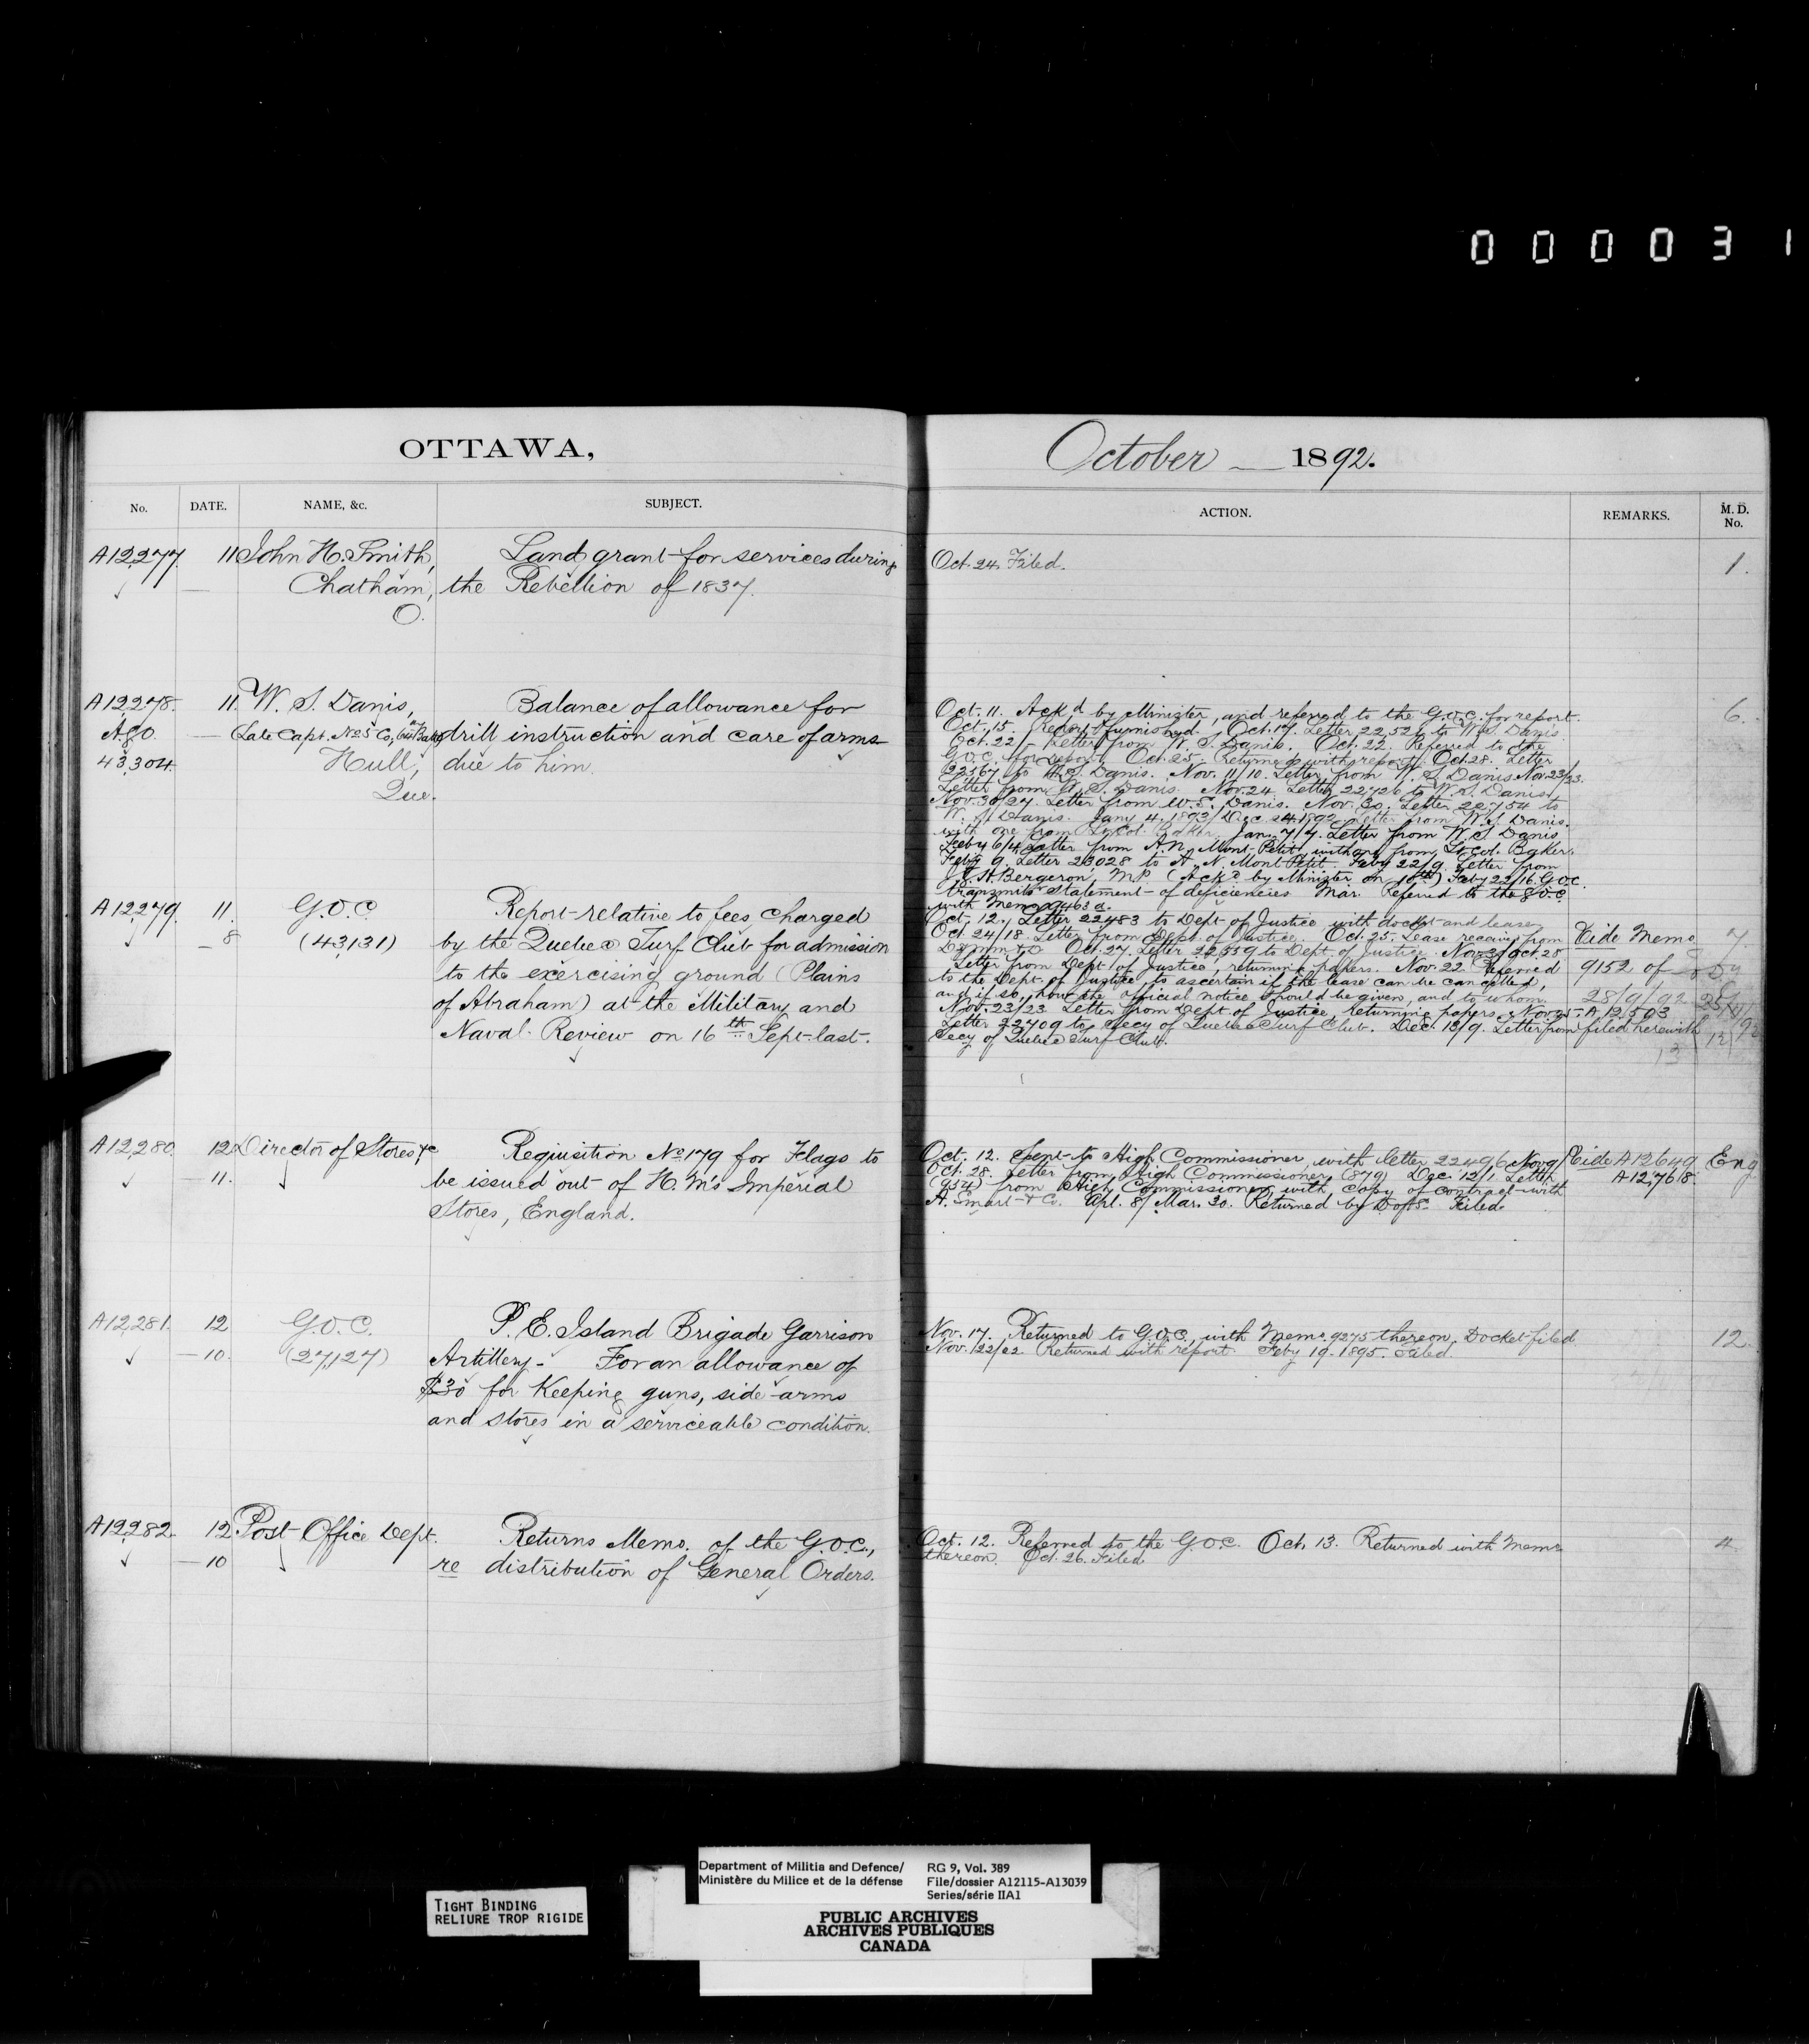 000031
OTTAWA,
October 1892.
No. DATE. NAME, &c. SUBJECT.
ACTION. REMARKS. M. D. No.
A12277 11 John H. Smith, Land grant for services during
Chatham, the Rebellion of 1837.
O.
Oct. 24. Filed. 1.
A12278. 11. W. S. Danis, Balance of allowance for
Late Capt. No 5 Co, drill instruction and care of arms
43,304. Hull, due to him.
Que.
Oct. 11. Ackd by Minister, and referred to the G.O.C. for report. 6.
Oct. 15. Report furnished. Oct. 17. Letter 22,526 to W. S. Danis
Oct. 22 Letter from W. S. Danis. Oct. 22. Referred to the
G.O.C. for report. Oct. 25. Returned with report. Oct. 28. Letter
22567 to W. S. Danis. Nov. 11/10. Letter from W. S. Danis Nov. 23/23.
Letter from W. S. Danis. Nov. 24. Letter 22726 to W. S. Danis
Nov. 30/27. Letter from W. S. Danis. Nov. 30. Letter 22754 to
W. S. Danis. Jany 4, 1893/Dec 1892 Letter from W. S. Danis.
with one from Lt. Col. Baker. Jan. 7/7. Letter from W. S. Danis
Feby 6/4 Letter from A. N. Mont-Petit, with one from Lt. Col. Baker.
Feby 9. Letter 23028 to A. N. Mont-Petit. Feby 22/9. Letter from
J. G. H. Bergeron, M.P. (Ackd by Minister on 10th) Feby 22/16. G.O.C.
transmits statement of deficiencies Mar. Referred to the G.O.C.
with Memo 9463
A12279. 11. G.O.C. Report relative to fees charged
8 (43,131) by the Quebec Turf Club for admission
to the exercising ground (Plains
of Abraham) at the Military and
Naval Review on 16th Sept. last.
Oct. 12. Letter 22483 to Dept. of Justice with docket and lease
Oct. 24/18. Letter from Dept. of Justice. Oct. 25. Lease received from
Oct. 27. Letter 22,559 to Dept. of Justice. Nov. Oct. 28
Letter from Dept. of Justice, returning papers. Nov. 22. Referred
to the Dept. of Justice, to ascertain if the lease can be cancelled,
and if so, how the official notice should be given, and to whom.
Nov. 23/23. Letter from Dept. of Justice, returning papers. Nov.
Letter 22709 to Secy of Quebec Turf Club. Dec. 13/9. Letter from
Secy of Quebec Turf Club.
Vide Memo 7
9152 of
28/9/92
A 12,503
filed herewith
A12,280. 12 Director of Stores &c Requisition No 179 for Flags to
11. be issued out of H. M's Imperial
Stores, England.
Oct. 12. Sent to High Commissioner, with letter 22496 Nov 9/ Vide A12649 Eng
Oct. 28. Letter from High Commissioner (879) Dec. 12/1. Letter A12,7618.
(954) from High Commissioner, with copy of contract with
A. Smart & Co. Apl. 8/Mar. 30. Returned by D of S. Filed
A12,281. 12 G.O.C. P. E. Island Brigade Garrison
10. (27,127) Artillery. For an allowance of
$30 for keeping guns, side-arms
and stores in a serviceable condition.
Nov. 17. Returned to G.O.C., with Memo. 9275 thereon. Docket filed 12.
Nov. 22/22. Returned with report. Feby 19. 1895. Filed.
A12,282. 12 Post Office Dept. Returns Memo. of the G.O.C.,
10 re distribution of General Orders.
Oct. 12. Referred to the G.O.C. Oct. 13. Returned with Memo 4
thereon. Oct. 26. Filed
TIGHT BINDING
RELIURE TROP RIGIDE
Department of Militia and Defence/ RG 9, Vol. 389
Ministère du Milice et de la défense File/dossier A12115-A13039
Series/série IIA1
PUBLIC ARCHIVES
ARCHIVES PUBLIQUES
CANADA